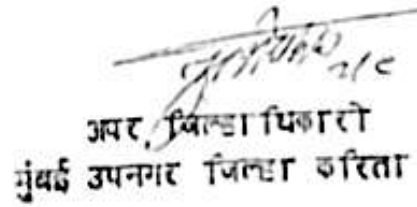 अपर, जिल्हाधिकारी
मुंबई उपनगर जिल्हा करिता